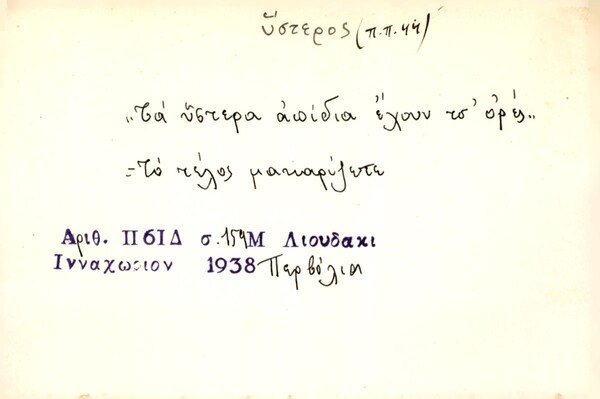 ὕστερος (π.π. 44)
„Τά ὕστερα ἀπίδια ἔχουν τσ' ὀρές„
=Τό τέλος μακαρίζετε
Αριθ. ΙΙ6ΙΔ σ. 154 Μ Λιουδακι
Ινναχωριον 1938 Περβόλια